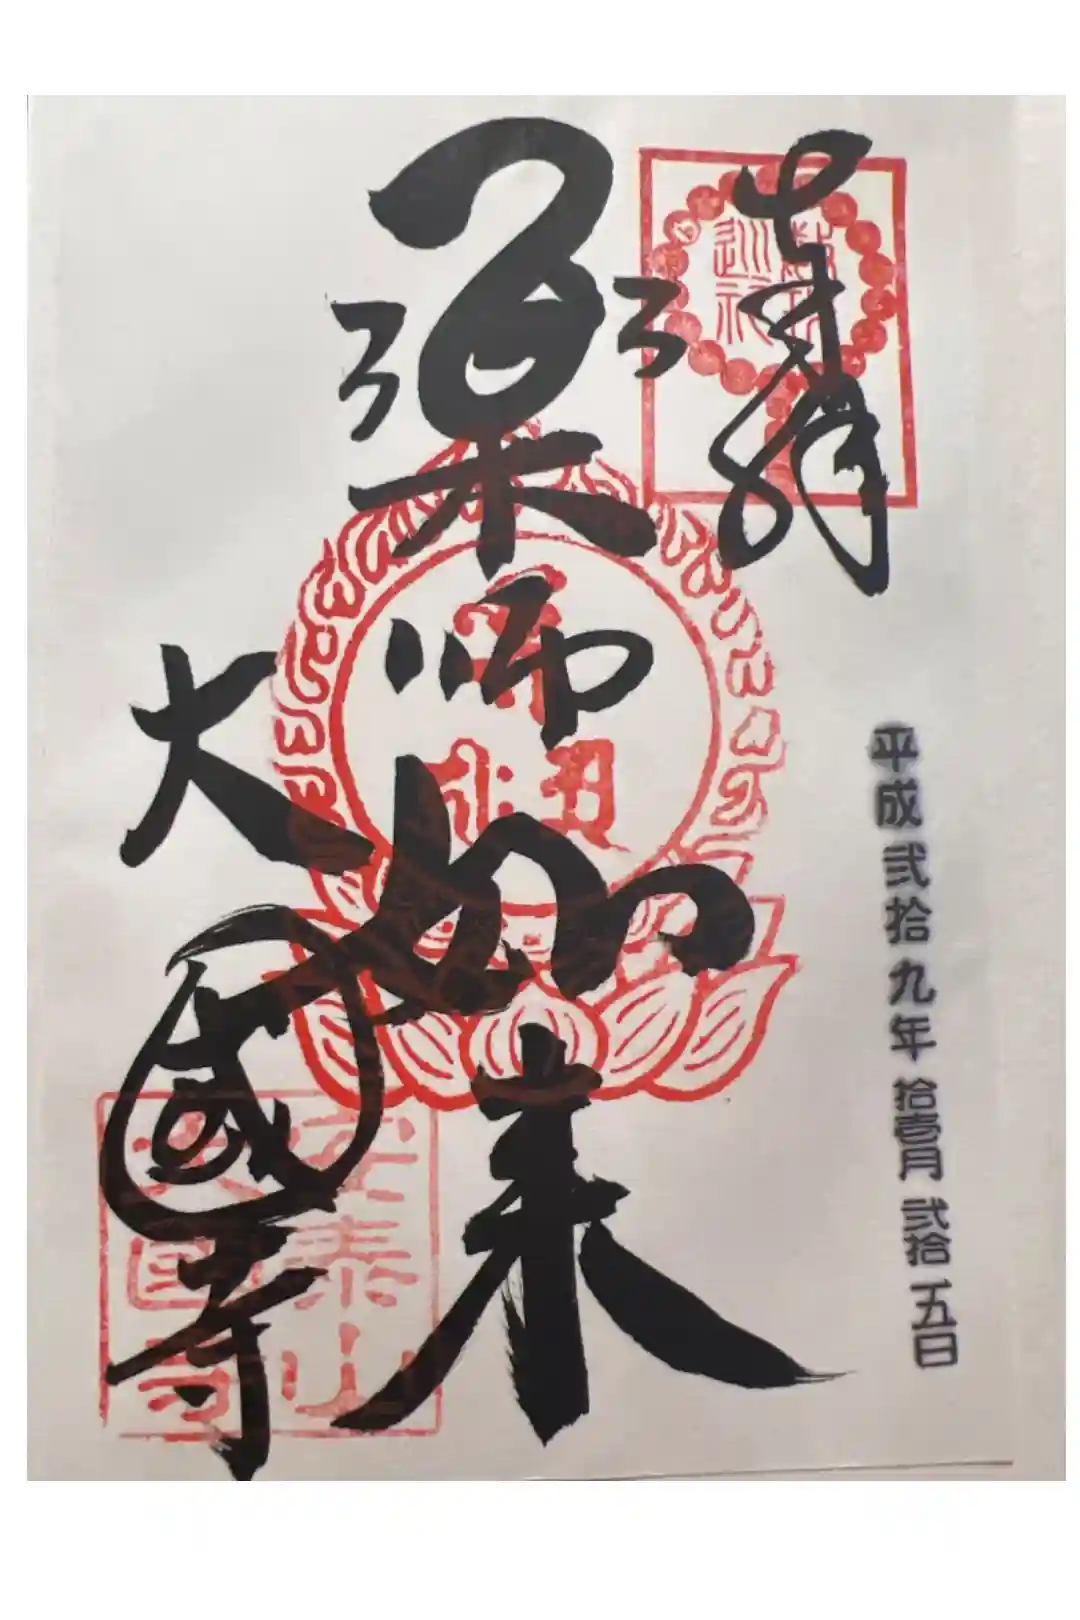 奉拝
平成弐拾九年拾壱月弐拾五日
薬師如来
大國寺
安泰山
大国寺